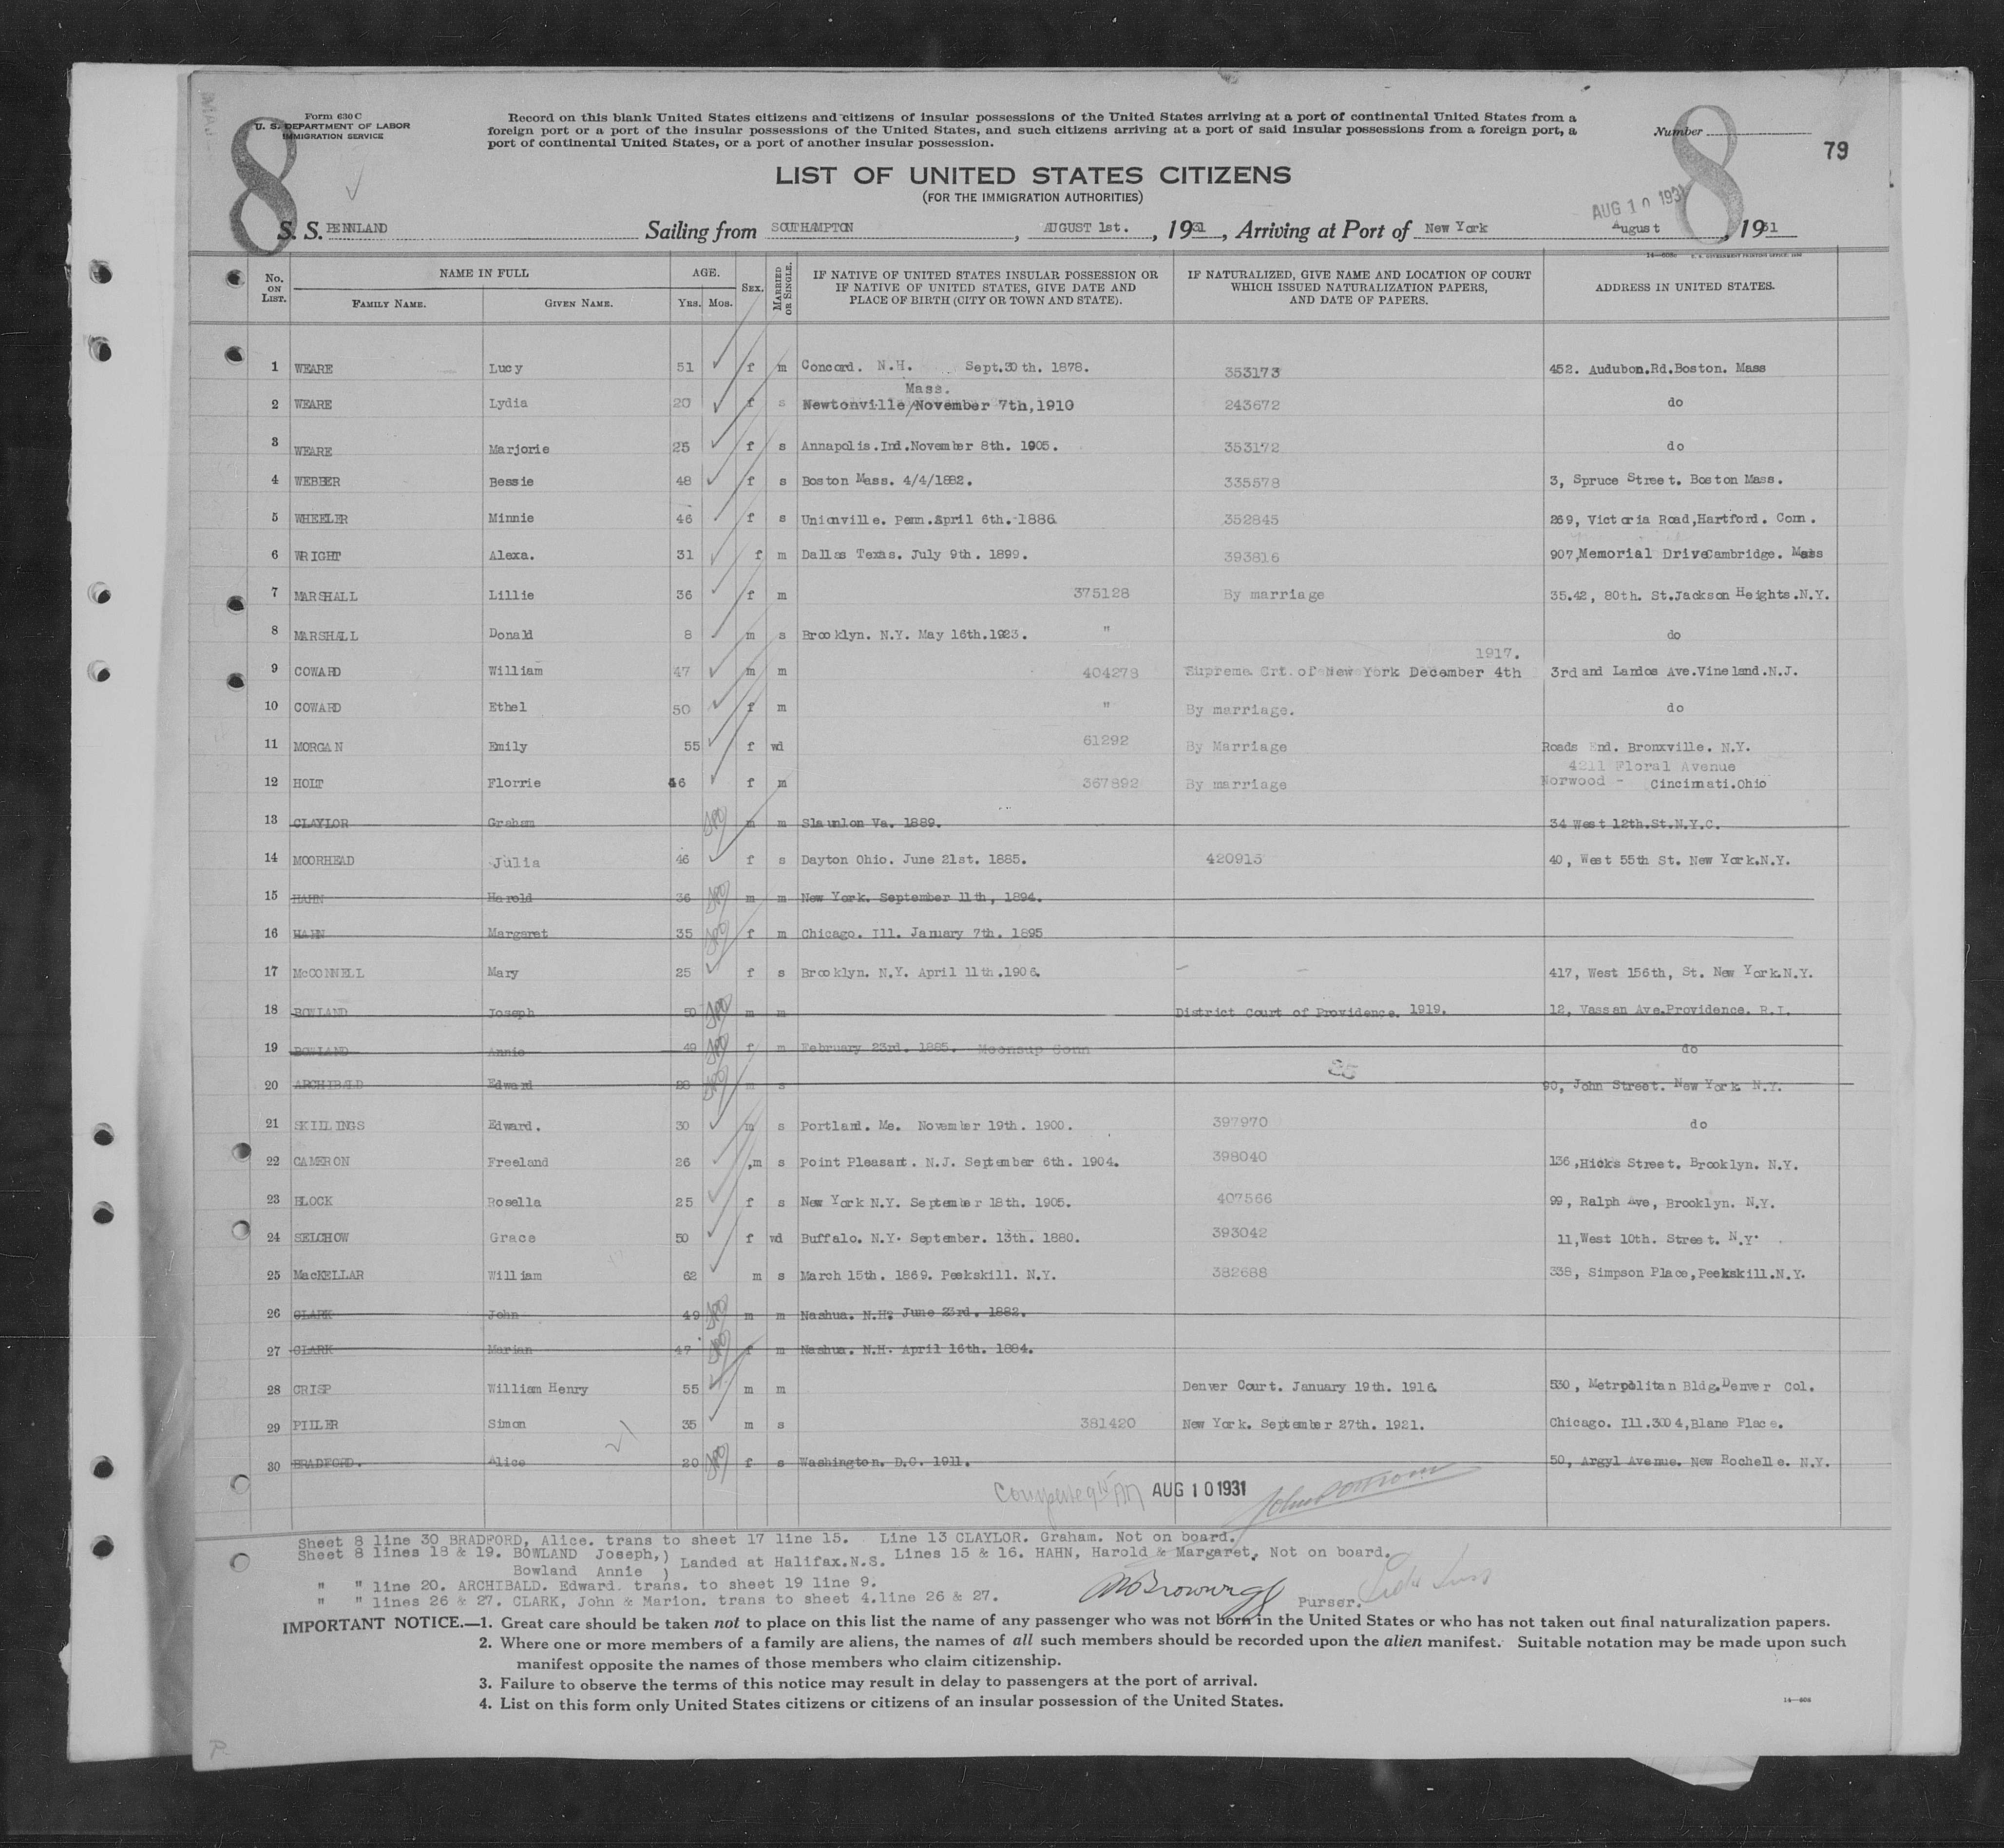 Form 630 C
U. S. DEPARTMENT OF LABOR
IMMIGRATION SERVICE
8
Record on this blank United States citizens and citizens of insular possessions of the United States arriving at a port of continental United States from a
foreign port or a port of the insular possessions of the United States, and such citizens arriving at a port of said insular possessions from a foreign port, a
port of continental United States, or a port of another insular possession.
Number
8
79
LIST OF UNITED STATES CITIZENS
(FOR THE IMMIGRATION AUTHORITIES)
AUG 10 1931
S. S. PENNLAND Sailing from SOUTHAMPTON, AUGUST 1st., 1931, Arriving at Port of New York August, 1931
No. ON LIST. NAME IN FULL FAMILY NAME. GIVEN NAME. AGE. YRS. MOS. SEX. MARRIED OR SINGLE. IF NATIVE OF UNITED STATES INSULAR POSSESSION OR IF NATIVE OF UNITED STATES, GIVE DATE AND PLACE OF BIRTH (CITY OR TOWN AND STATE). IF NATURALIZED, GIVE NAME AND LOCATION OF COURT WHICH ISSUED NATURALIZATION PAPERS, AND DATE OF PAPERS. ADDRESS IN UNITED STATES.
1 WEARE Lucy 51 f m Concord. N.H. Sept.30th. 1878. 353173 452. Audubon.Rd.Boston. Mass
Mass.
2 WEARE Lydia 20 f s Newtonville/November 7th,1910 243672 do
3 WEARE Marjorie 25 f s Annapolis.Ind.November 8th. 1905. 353172 do
4 WEBBER Bessie 48 f s Boston Mass. 4/4/1882. 335578 3, Spruce Street. Boston Mass.
5 WHEELER Minnie 46 f s Unionville. Penn.April 6th.-1886 352845 269, Victoria Road,Hartford. Conn.
6 WRIGHT Alexa. 31 f m Dallas Texas. July 9th. 1899. 393816 907,Memorial DriveCambridge. Mass
7 MARSHALL Lillie 36 f m 375128 By marriage 35.42, 80th. St.Jackson Heights.N.Y.
8 MARSHALL Donald 8 m s Brooklyn. N.Y. May 16th.1923. " do
1917.
9 COWARD William 47 m m 404278 Supreme Crt. of New York December 4th 3rd and Landos Ave.Vineland.N.J.
10 COWARD Ethel 50 f m " By marriage. do
11 MORGAN Emily 55 f wd 61292 By Marriage Roads End. Bronxville. N.Y.
4211 Floral Avenue
12 HOLT Florrie 46 f m 367892 By marriage Norwood - Cincinnati.Ohio
13 CLAYLOR Graham m m Slaunlon Va. 1889. 34 West 12th.St.N.Y.C.
14 MOORHEAD Julia 46 f s Dayton Ohio. June 21st. 1885. 420915 40, West 55th St. New York.N.Y.
15 HAHN Harold 36 m m New York. September 11th, 1894.
16 HAHN Margaret 35 f m Chicago. Ill. January 7th. 1895
17 McCONNELL Mary 25 f s Brooklyn. N.Y. April 11th.1906. - - 417, West 156th, St. New York.N.Y.
18 BOWLAND Joseph 50 m m District Court of Providence. 1919. 12, Vassan Ave.Providence. R.I.
19 BOWLAND Annie 49 f m February 23rd. 1885. Moonsup Conn do
20 ARCHIBALD Edward 28 m s 90, John Street. New York. N.Y.
21 SKILLINGS Edward. 30 m s Portland. Me. November 19th. 1900. 397970 do
22 CAMERON Freeland 26 ,m s Point Pleasant. N.J. September 6th. 1904. 398040 136,Hicks Street. Brooklyn. N.Y.
23 BLOCK Rosella 25 f s New York N.Y. September 18th. 1905. 407566 99, Ralph Ave, Brooklyn. N.Y.
24 SELCHOW Grace 50 f wd Buffalo. N.Y. September. 13th. 1880. 393042 11,West 10th. Street. N.Y.
25 MacKELLAR William 62 m s March 15th. 1869. Peekskill. N.Y. 382688 338, Simpson Place,Peekskill.N.Y.
26 CLARK John 49 m m Nashua. N.H. June 23rd. 1882.
27 CLARK Marian 47 f m Nashua. N.H. April 16th. 1884.
28 CRISP William Henry 55 m m Denver Court. January 19th. 1916. 530, Metrpolitan Bldg.Denver Col.
29 PILLER Simon 35 m s 381420 New York. September 27th. 1921. Chicago. Ill.3004,Blane Place.
30 BRADFORD. Alice 20 f s Washington. D.C. 1911. 50, Argyl Avenue. New Rochelle. N.Y.
AUG 10 1931
Sheet 8 line 30 BRADFORD, Alice. trans to sheet 17 line 15. Line 13 CLAYLOR. Graham. Not on board.
Sheet 8 lines 18 & 19. BOWLAND Joseph,) Landed at Halifax.N.S. Lines 15 & 16. HAHN, Harold & Margaret, Not on board.
Bowland Annie )
" " line 20. ARCHIBALD. Edward. trans. to sheet 19 line 9.
" " lines 26 & 27. CLARK, John & Marion. trans to sheet 4.line 26 & 27.
Purser.
IMPORTANT NOTICE.—1. Great care should be taken not to place on this list the name of any passenger who was not born in the United States or who has not taken out final naturalization papers.
2. Where one or more members of a family are aliens, the names of all such members should be recorded upon the alien manifest. Suitable notation may be made upon such
manifest opposite the names of those members who claim citizenship.
3. Failure to observe the terms of this notice may result in delay to passengers at the port of arrival.
4. List on this form only United States citizens or citizens of an insular possession of the United States.
14—608
P.